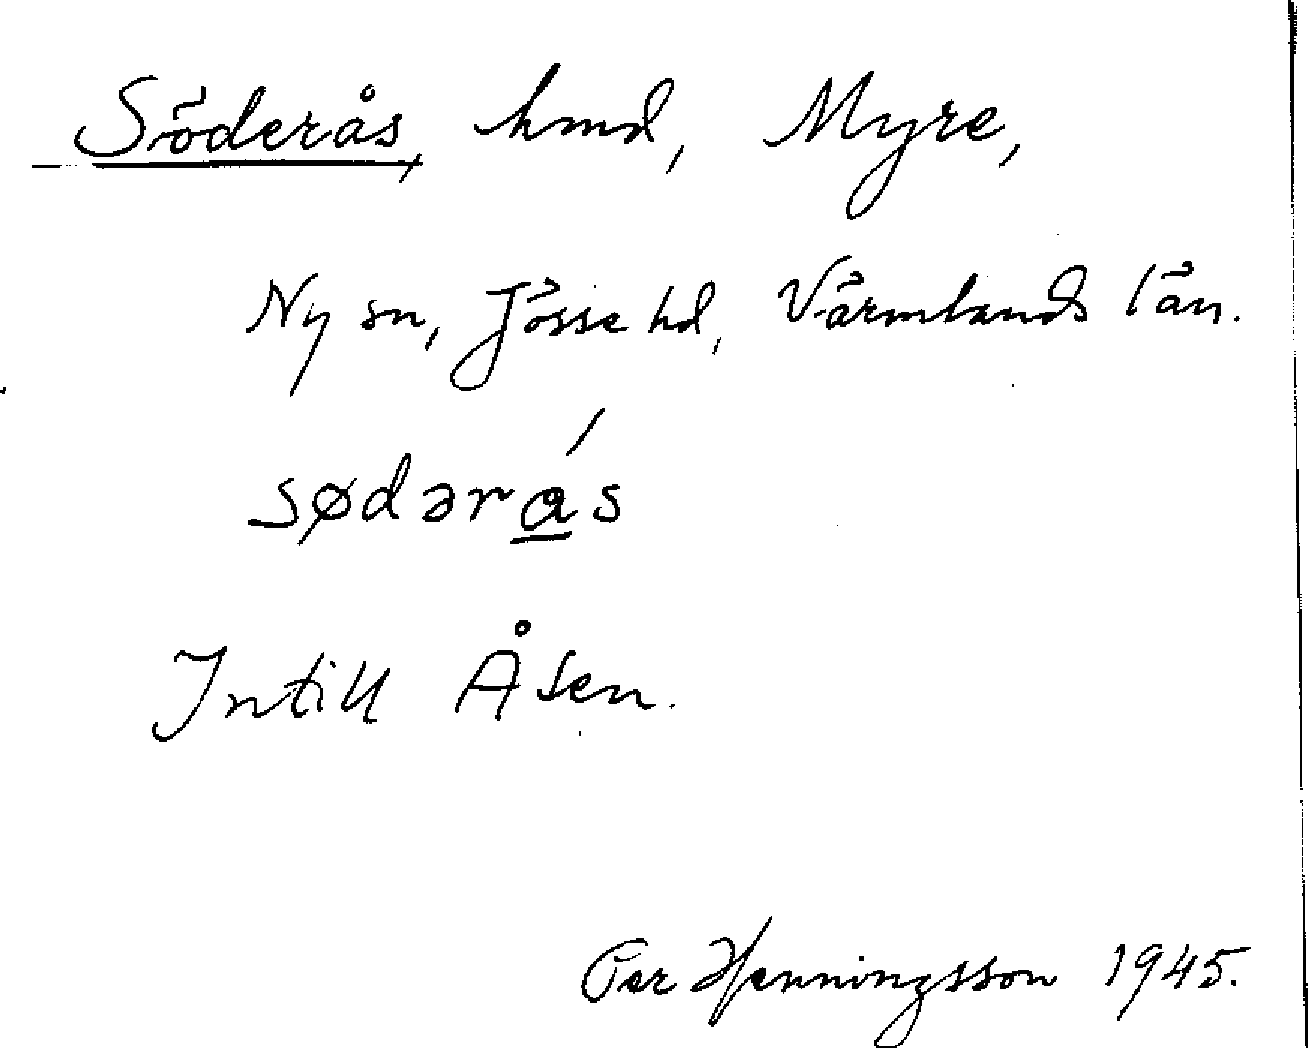 Söderås, hmd, Myre,
Ny sn, Jösse hd, Värmlands län.
sødərá̲s
Intill Åsen.
Per Henningsson 1945.